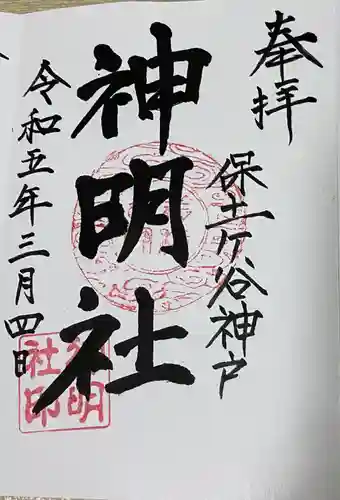 奉拝
保土ヶ谷神戸
神明社
令和五年三月四日
神明社印